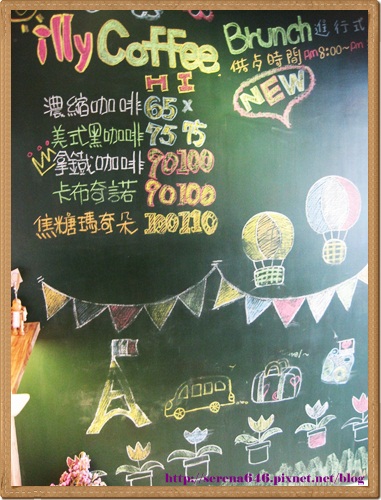 illy Coffee
Brunch 進行式
供點時間 Am 8:00~Pm
NEW
H I
濃縮咖啡 65 x
美式黑咖啡 75 75
拿鐵咖啡 90 100
卡布奇諾 90 100
焦糖瑪奇朵 100 110
http://serena646.pixnet.net/blog